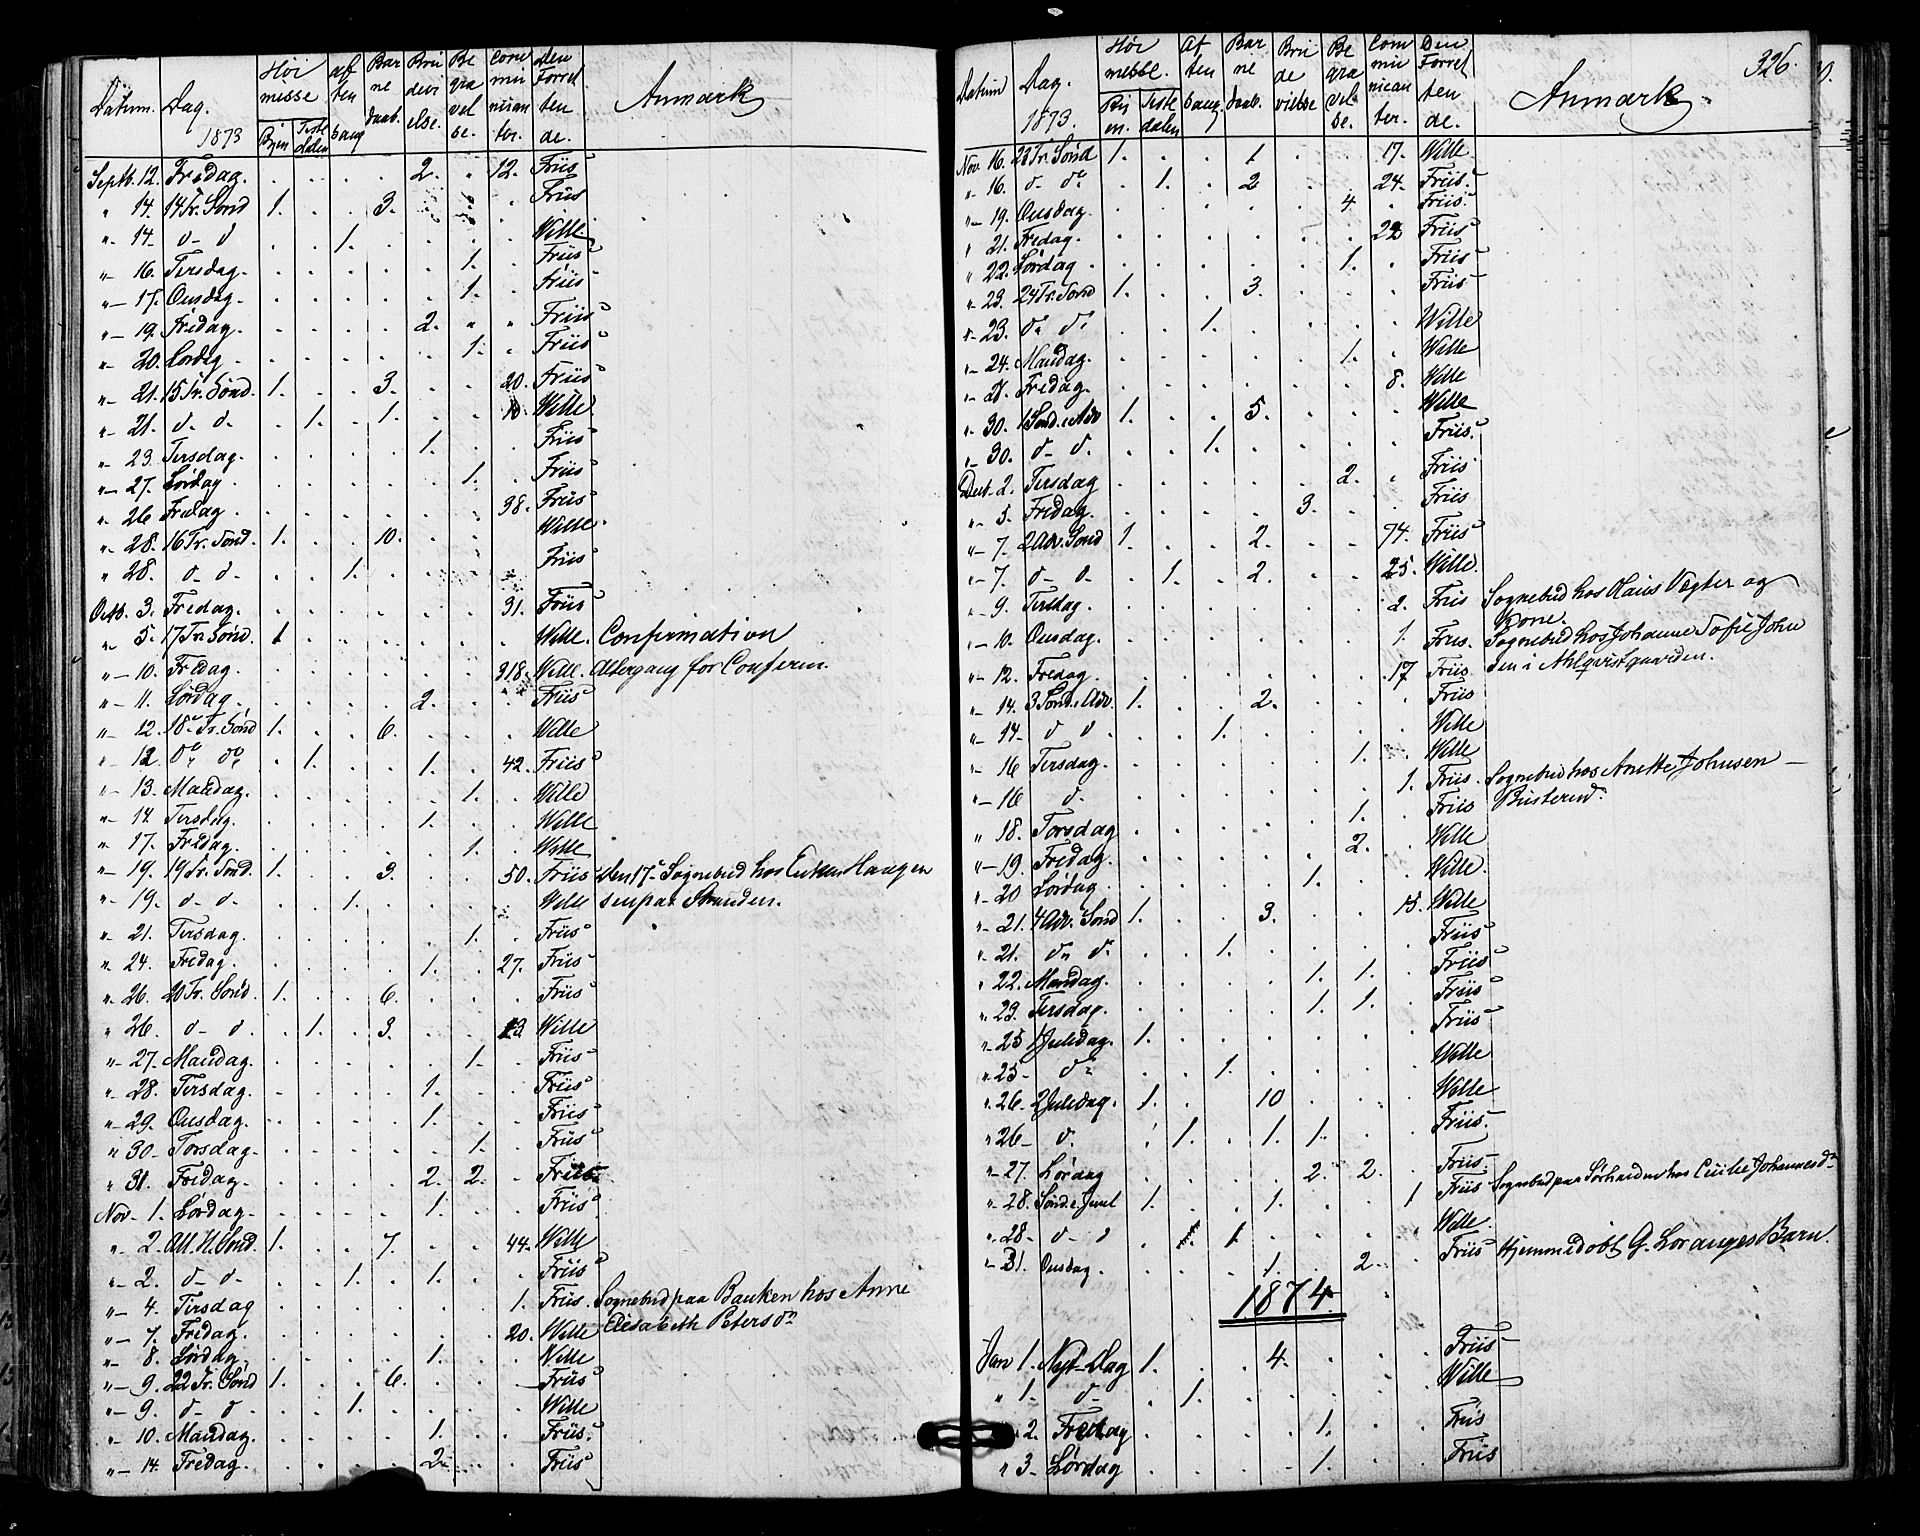 Datum. Dag. 1873 Høi messe Byen Tistedalen aften sang Barne daab. Bru devi else. Be gra vel se. Com mu nican ter. Den Forret ten de. Anmærk
Septb. 12. Fredag. 2. 12. Friis
" 14. 14 Tr. Sønd 1. 3. Friis
"- 14. d- d 1. Wille
"- 16. Tirsdag. 1. Friis
"- 17. Onsdag. 1. Friis
"- 19. Fredag. 2. Friis
"- 20. Lørdag 1. Friis
"- 21. 15 Tr. Sønd. 1. 3. 20. Friis
"- 21. d. d. 1. 1. Wille
"- 23. Tirsdag. 1. Friis
"- 27. Lørdag 1. Friis
"- 26 Fredag 38. Friis
"- 28. 16 Tr. Sønd. 1. 10. Wille.
" 28. d- d- 1. Friis
Octb. 3. Fredag. 31. Friis
"- 5. 17 Tr. Sønd. 1 Wille. Confirmation
"- 10. Fredag. 318. Wille. Altergang for Conferm.
"- 11. Lørdag. 2. Friis
"- 12. 18 Tr. Sønd 1. 6. Wille
"- 12. do do 1. 1. 42. Friis
"- 13. Mandag. 1. Wille
"- 14. Tirsdag. 1. Wille
"- 17. Fredag. 1. Wille
"- 19. 19 Tr. Sønd. 1. 3. 50. Friis den 17- Sognebud hos
"- 19. d- d- 1. Wille sen paa Stranden.
"- 21. Tirsdag. 1. Friis
"- 24. Fredag. 1. 27. Friis
"- 26. 20 Tr. Sønd. 1. 6. Friis
"- 26. d- d. 1. 3. 13 Wille
"- 27. Mandag. 1. Friis
"- 28. Tirsdag. 1. Friis
"- 29. Onsdag. 1. Friis
" 30- Torsdag- 1. Friis
" 31. Fredag. 2. 2. Friis
Nov- 1. Lørdag- 1. Friis
"- 2. All. H. Sønd. 1. 7. 44. Wille
"- 2. d- d- 1. 1. Friis
"- 4. Tirsdag 1. Friis. Sognebud paa Banken hos Anne
"- 7. Fredag. 20. Wille Elisabeth Petersdn
"- 8. Lørdag 1. Wille
"- 9. 22 Tr. Sønd 1. 6. Friis
"- 9. d- d- 1. Wille
"- 10. Mandag. 1. Friis.
"- 14. Fredag. 2. Friis
326.
Datum Dag. 1873. Høi messe. By en. Tiste dalen Af ten sang. Bar ne daab. Bru de vielse Be gra vel se. Com mu nican ter. Den Forret ten de. Anmærk
Nov. 16. 23 Tr. Sønd 1. 1. 17. Wille
"- 16. d- do 1. 2. 24. Friis.
"- 19. Onsdag. 4 Friis.
" 21. Fredag. Friis
" 22. Lørdag 1. Friis
"- 23. 24 Tr. Sønd 1. 3. Friis
"- 23. d. d. 1. Wille
"- 24. Mandag. 1. Wille
Fredag. 8. Wille
"- 30. 1 Sønd. i Adv 1. 5. Wille
"- 30. d- d. 1. Friis.
Decb. 2. Tirsdag 2. Friis
"- 5. Fredag. 3. Friis
"- 7. 2 Adv. Sønd 1. 2. 74. Friis
"- 7. d- d- 1. 2. 25. Wille.
"- 9. Tirsdag. 2. Friis Sognebud hos Hans Vegter og
Kone.
"- 10. Onsdag. 1. Friis. Sognebud hos Johanne Sofie John
"- 12. Fredag. 17 Friis sen i Ahlqvistgaarden.
"- 14. 3 Sønd. i Adv. 1. 2. Friis
"- 14- d d. 1. Wille
"- 16 Tirsdag. 1. Wille
"- 16 d. 1. Friis. Sognebud hos Anette Johnsen -
" 18. Torsdag 1. Friis Busterud.
"- 19. Fredag. 2. Wille
"- 20 Lørdag. 1. Wille.
"- 21. 4 Adv. Sønd 1. 3. 15. Wille
"- 21. d. d. 1. Friis
"- 22. Mandag. 1. 1. Friis
"- 23. Tirsdag. 1. 1. Friis
"- 25 1 Juledag. 1. Friis
"- 25- d- 1. Wille
"- 26. 2 Juledag. 1. 10 Wille
"- 26- d. 1. 1. 1. Friis.
"- 27. Lørdag 2. 2. Friis.
"- 28. Sønd. e. Juul 1. 1. 1 Friis Sognebud paa Sørhalden hos Cecilie Johannesdn
"- 28- d- d 1. 1 Wille.
"- 31. Onsdag. 1. 2. Friis Hjemmedøbt G. Loranges Barn.
1874.
Jan 1. Nyt-Dag 1. 4. Friis
" 1. d- 1. Wille
2. Fredag 1. Friis
" 3- Lørdag 1. Friis